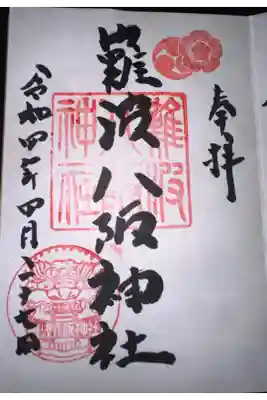 奉拝
難波八阪神社
令和四年四月二十七日
難波八阪神社